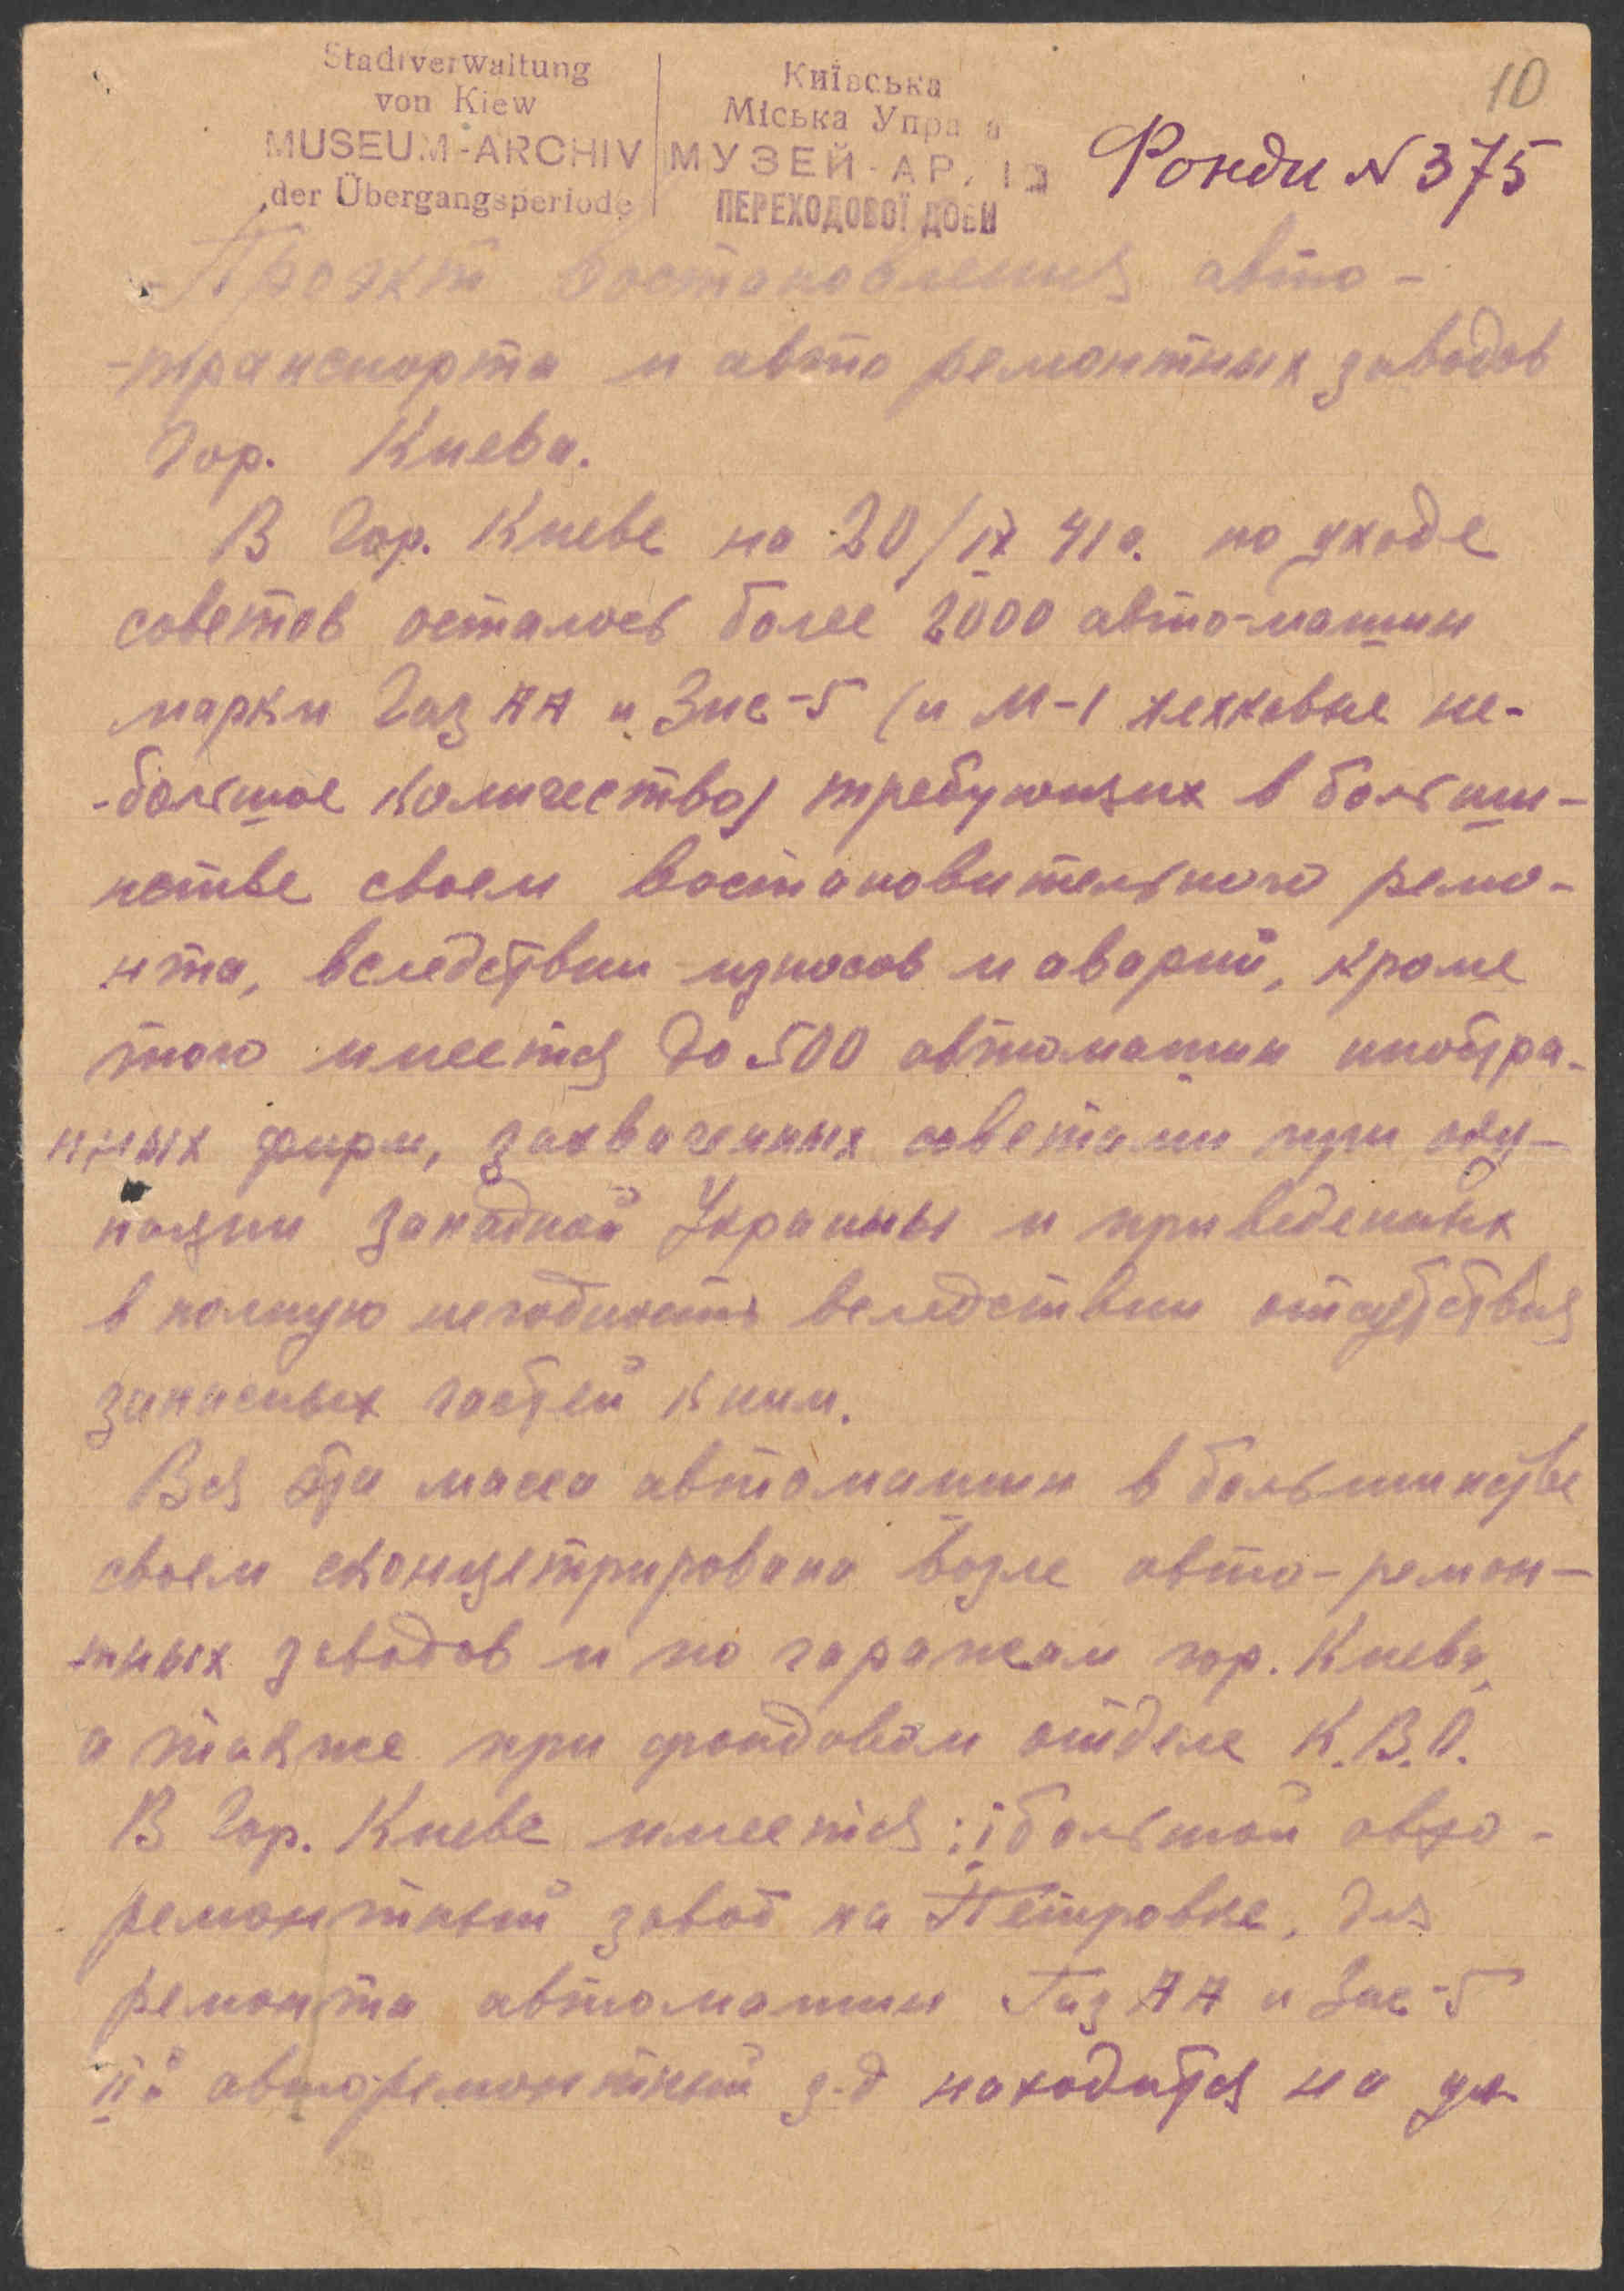 Stadtverwaltung
von Kiew
MUSEUM-ARCHIV
der Übergangsperiode
Київська
Міська Упра а
МУЗЕЙ-АР. ІВ
ПЕРЕХОДОВОЇ ДОБИ
10
Фонди N 375
Проэкт востановления авто-
-транспорта и авто ремонтных заводов
Гор. Киева.
В Гор. Киеве на 20/IX 41 г. по уходе
советов осталось более 2000 авто-машин
марки Газ АА и Зис-5 (и М-1 легковые не-
-большое количество) требующих в больши-
нстве своем востановительного ремо-
нта, вследствии износов и аварий, кроме
того имеется до 500 автомашин иностра-
нных фирм, захваченных советами при оку-
пации западной Украины и приведенных
в полную негодность вследствии отсутствия
запасных частей к ним.
Вся эта масса автомашин в большинстве
своем сконцетрирована возле авто-ремон-
-тных заводов и по гаражам гор. Киева,
а также при фондовом отделе К.В.О.
В Гор. Киеве имеется: I большой авто-
ремонтный завод на Петровке, для
ремонта автомашин Газ АА и Зис-5
II й авторемонтный з-д находится на ул.